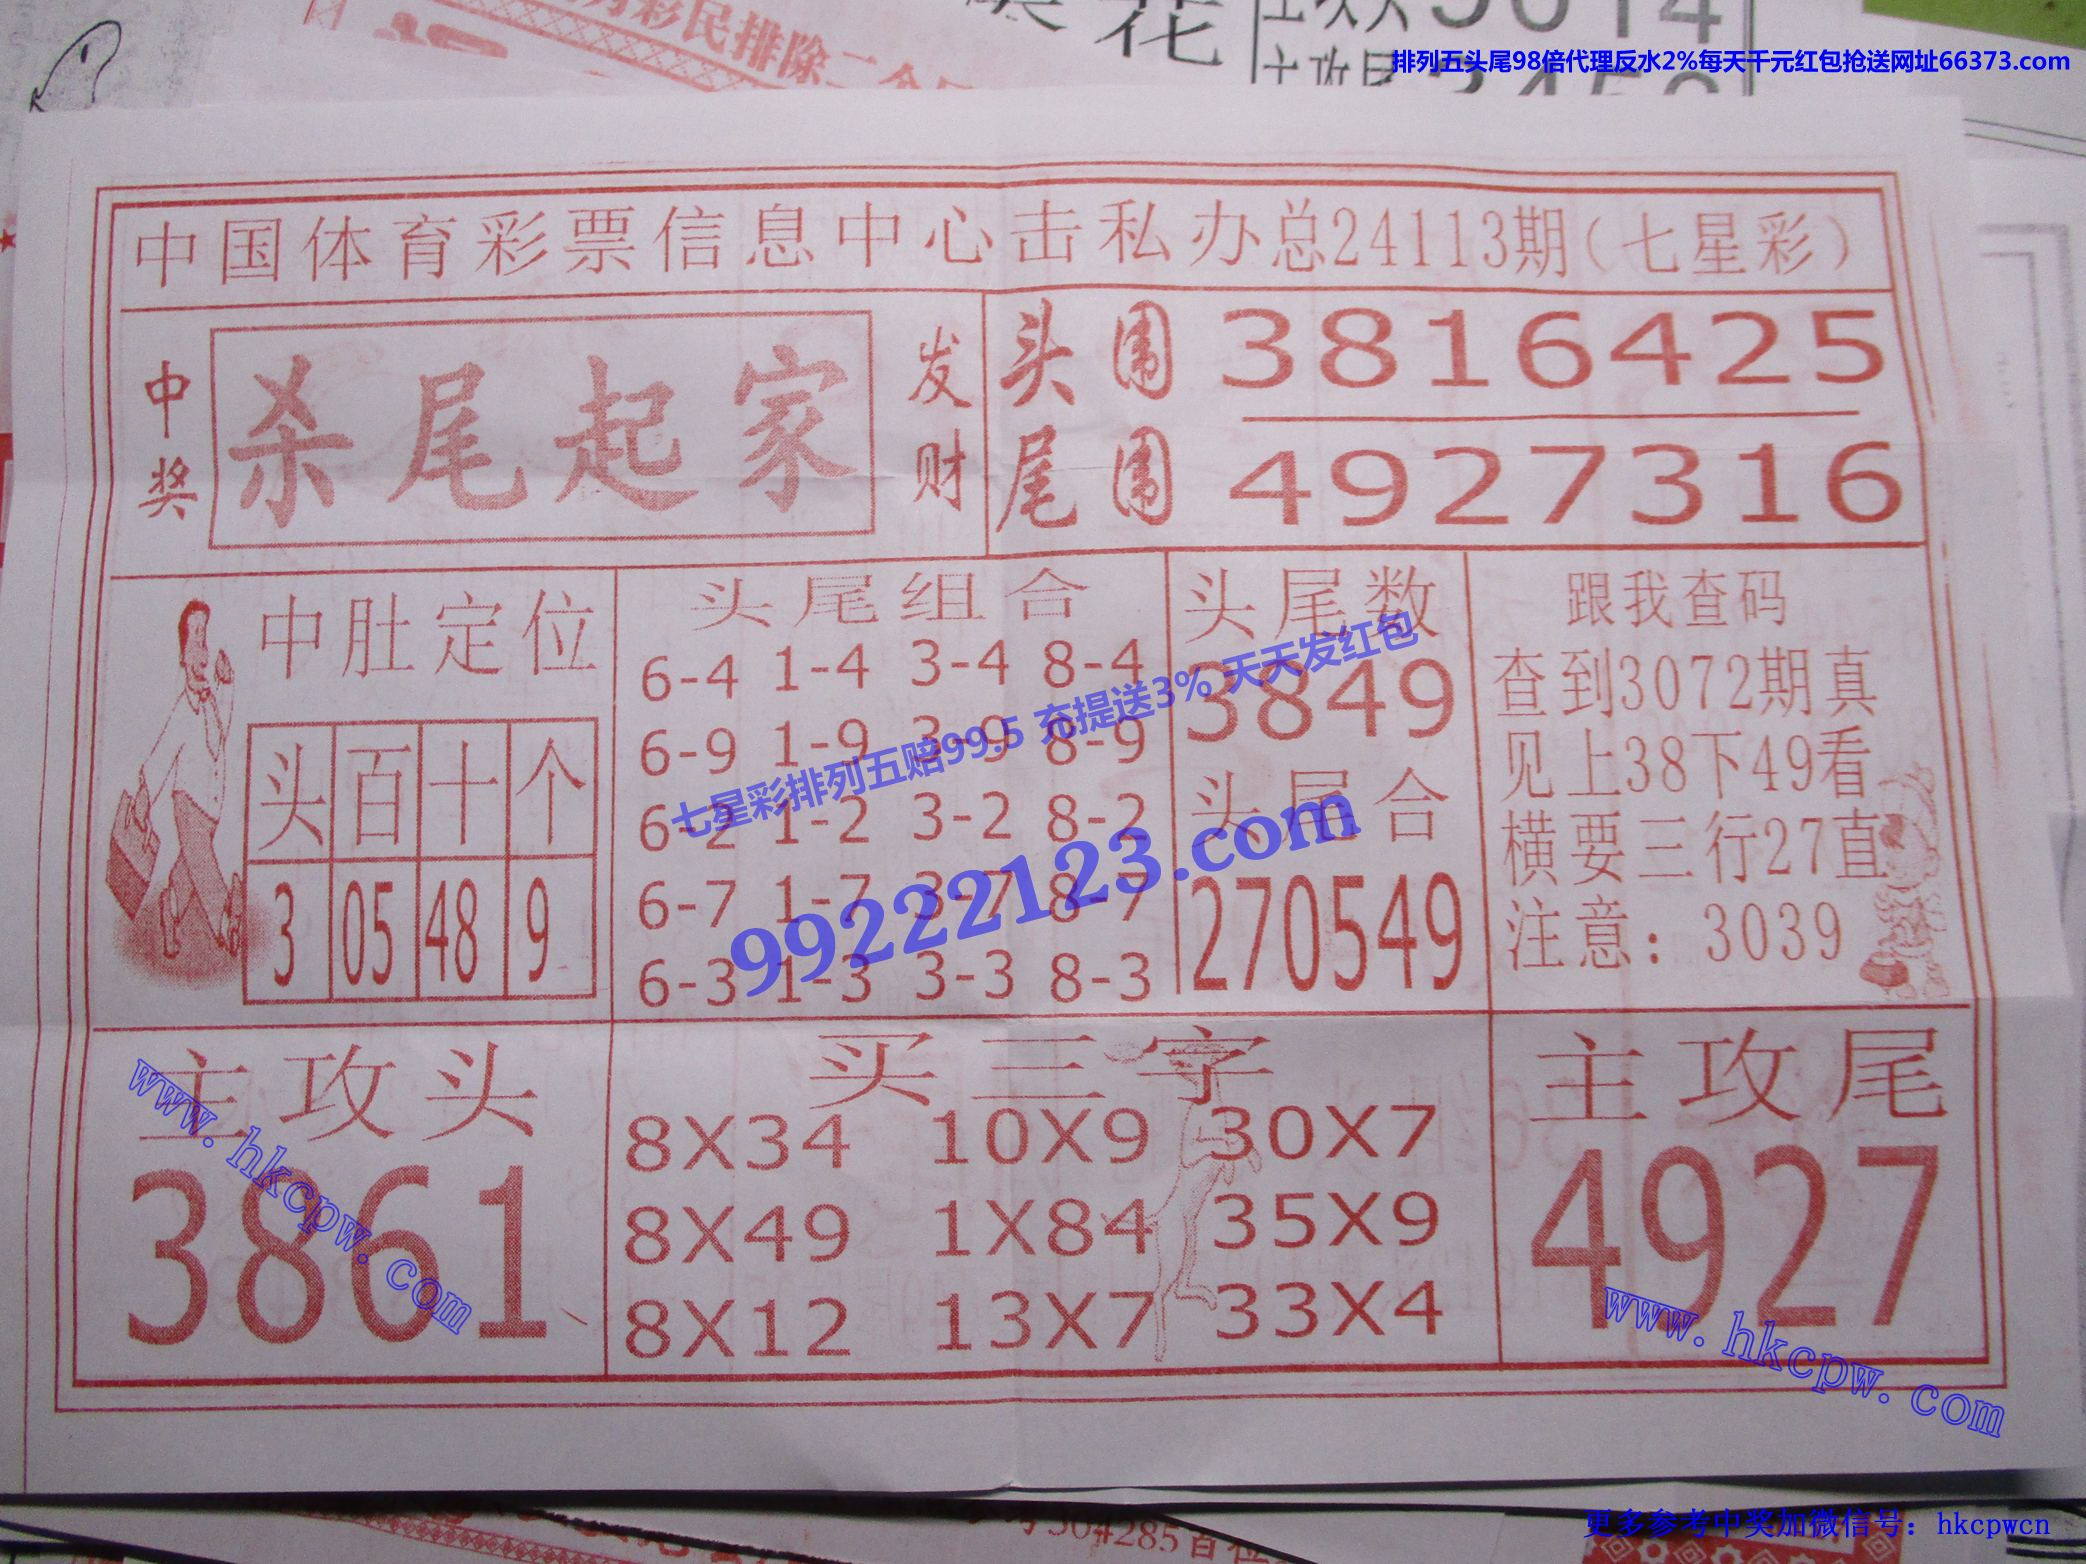 方彩民排除二个
花
5614
排列五头尾98倍代理反水2%每天千元红包抢送网址66373.com
中国体育彩票信息中心击私办总24113期(七星彩)
中奖
杀尾起家
发财
头围 3816425
尾围 4927316
中肚定位
头 百 十 个
3 05 48 9
头尾组合
6-4 1-4 3-4 8-4
6-9 1-9 3-9 8-9
6-2 1-2 3-2 8-2
6-7 1-7 3-7 8-7
6-3 1-3 3-3 8-3
头尾数
3849
头尾合
270549
跟我查码
查到3072期真
见上38下49看
横要三行27直
注意：3039
七星彩排列五赔99.5 充提送3% 天天发红包
99222123.com
主攻头
3861
买三字
8X34 10X9 30X7
8X49 1X84 35X9
8X12 13X7 33X4
主攻尾
4927
www.hkcpw.com
www.hkcpw.com
更多参考中奖加微信号：hkcpwcn